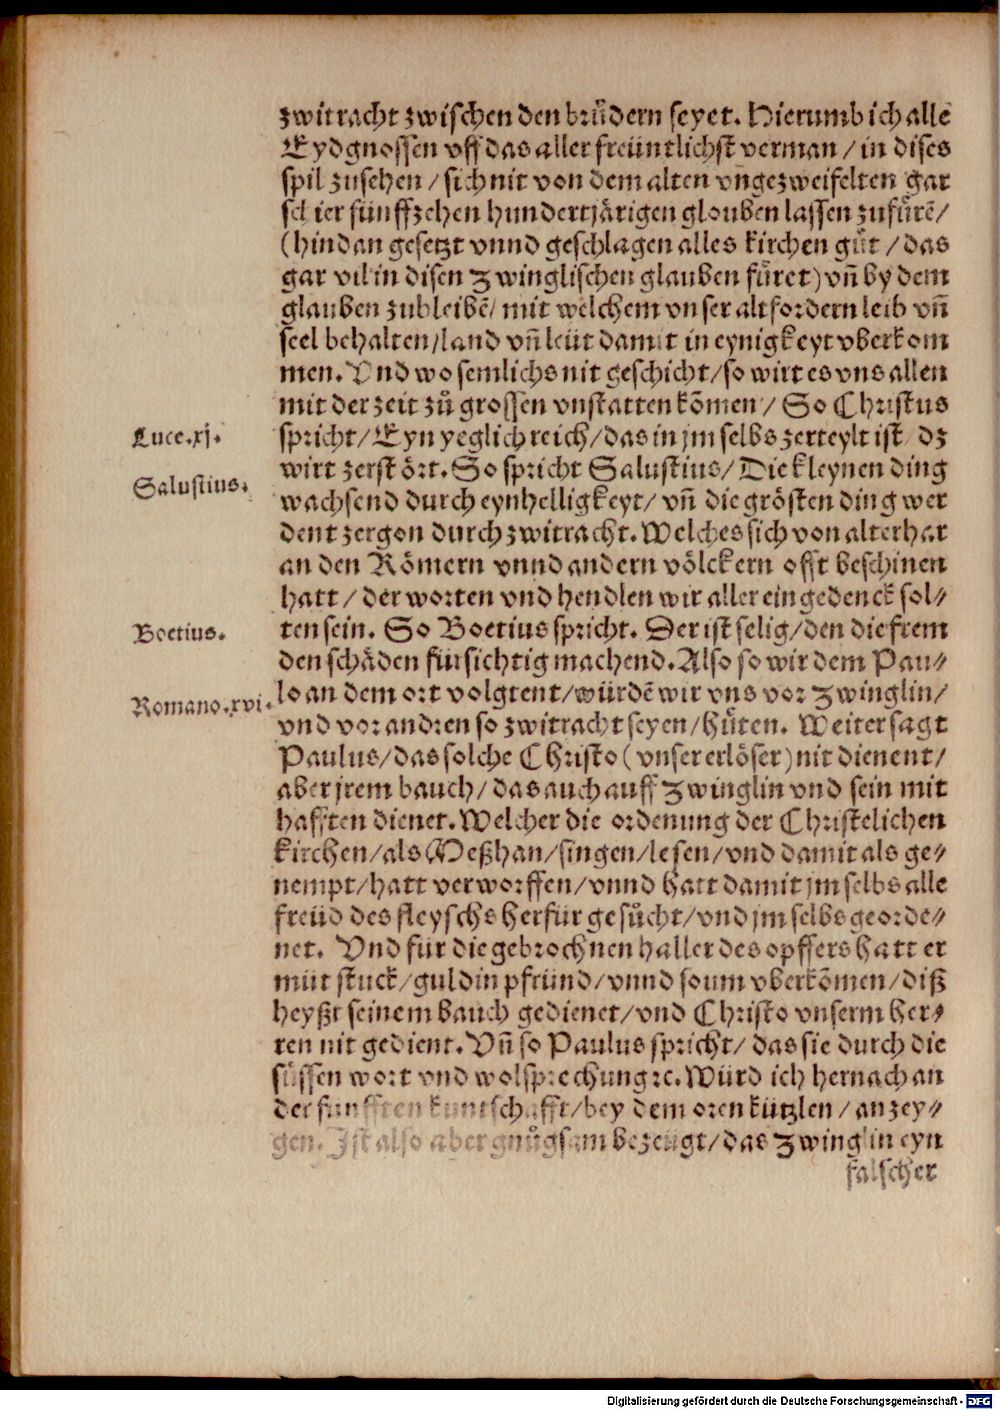 zwitracht zwischen den brůdern seyet. Hierumb ich alle
Eydgnossen vff das aller freüntlichst verman / in dises
spil zusehen / sich nit von dem alten vngezweifelten gar
schier fünffzehen hundertjärigen glouben lassen zufürẽ /
(hindan gesetzt vnnd geschlagen alles kirchen gůt / das
gar vil in disen Zwinglischen glauben füret) vñ by dem
glauben zubleibẽ / mit welchem vnser altfordern leib vñ
seel behalten / land vñ leüt damit in eynigkeyt vberkom
men. Vnd wo semlichs nit geschicht / so wirt es vns allen
mit der zeit zů grossen vnstatten kõmen / So Christus
Luce.xj.
spricht / Eyn yeglich reich / das in jm selbs zerteylt ist / dz
wirt zerstört. So spricht Salustius / Die kleynen ding
Salustius.
wachsend durch eynhelligkeyt / vñ die grösten ding wer
dent zergon durch zwitracht. Welches sich von alterhar
an den Römern vnnd andern völckern offt beschinen
hatt / der worten vnd hendlen wir aller eingedenck sol⸗
Boetius.
ten sein. So Boetius spricht. Der ist selig / den die frem
den schäden fürsichtig machend. Also so wir dem Pau⸗
lo an dem ort volgtent / würdẽ wir vns vor Zwinglin /
Romano.xvi.
vnd vor andren so zwitracht seyen / hüten. Weiter sagt
Paulus / das solche Christo (vnser erlöser) nit dienent /
aber jrem bauch / das auch auff Zwinglin vnd sein mit
hafften dienet. Welcher die ordenung der Christelichen
kirchen / als Meßhan / singen / lesen / vnd damit als ge⸗
nempt / hatt verworffen / vnnd hatt damit jm selbs alle
freüd des fleyschs herfür gesůcht / vnd jm selbs georde⸗
net. Vnd für die gebrochnen haller des opffers hatt er
müt stuck / guldin pfründ / vnnd soum vberkõmen / diß
heyßt seinem bauch gedienet / vnd Christo vnserm her⸗
ren nit gedient. Vñ so Paulus spricht / das sie durch die
süssen wort vnd wolsprechung ꝛc. Würd ich hernach an
der fünfften kuntschafft / bey dem oren kützlen / anzey⸗
gen. Ist also aber gnůgsam bezeügt / das Zwinglin eyn
falscher
Digitalisierung gefördert durch die Deutsche Forschungsgemeinschaft - DFG